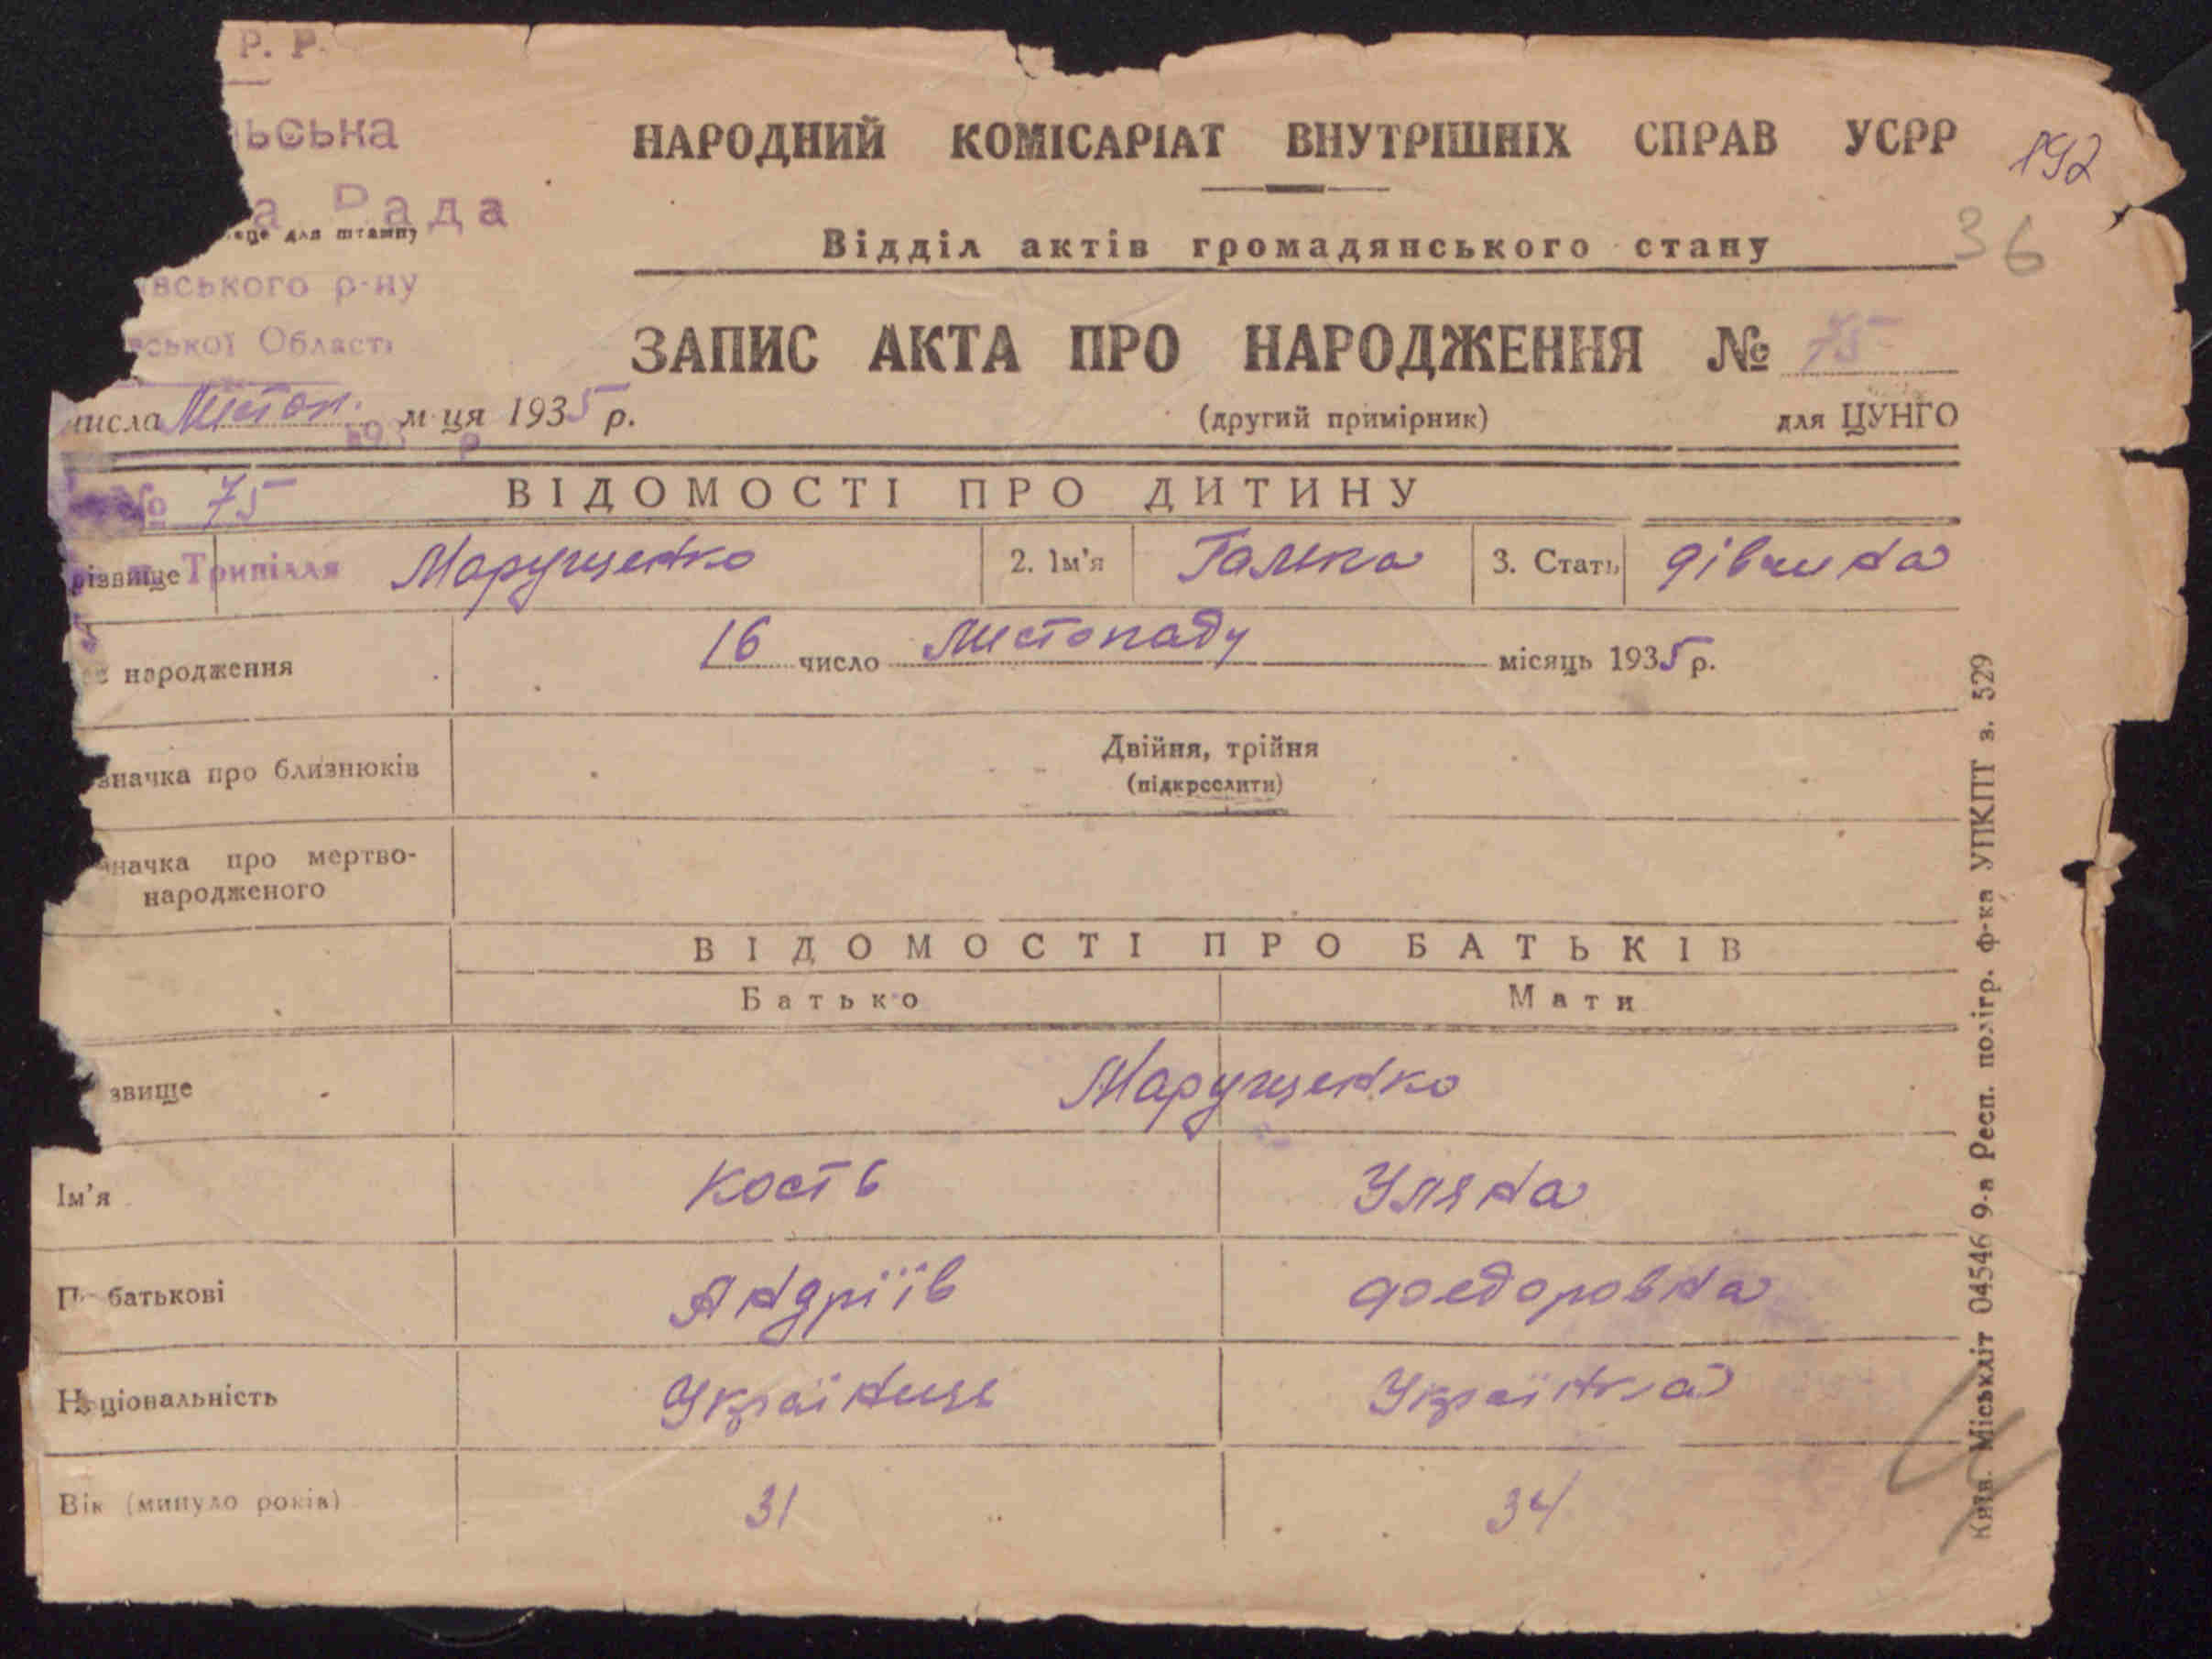 Р. Р.
ьська
а Рада
для штампу
вського р-ну
ської Області
НАРОДНИЙ КОМІСАРІАТ ВНУТРІШНІХ СПРАВ УСРР
192
Відділ актів громадянського стану
36
ЗАПИС АКТА ПРО НАРОДЖЕННЯ № 75
числа Листоп. м-ця 1935 р.
(другий примірник) для ЦУНГО
№ 75
ВІДОМОСТІ ПРО ДИТИНУ
різвище Трипілля Марущенко 2. Ім'я Галька 3. Стать дівчина
народження 16 число Листопаду місяць 1935 р.
значка про близнюків Двійня, трійня
(підкреслити)
значка про мертво-
народженого
ВІДОМОСТІ ПРО БАТЬКІВ
Батько Мати
звище Марущенко
Ім'я Кость Уляна
По батькові Андріїв Федоровна
Національність Українець Українка
Вік (минуло років) 31 34
Київ. Міськліт 04546 9-а Респ. полігр. ф-ка УПКПТ з. 529